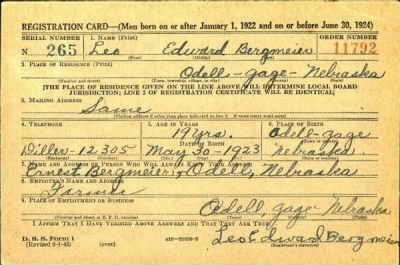 REGISTRATION CARD—(Men born on or after January 1, 1922 and on or before June 30, 1924)
SERIAL NUMBER 1. NAME (Print) ORDER NUMBER
N 265 Leo Edward Bergmeier 11792
(First) (Middle) (Last)
2. PLACE OF RESIDENCE (Print)
Odell - gage - Nebraska
(Number and street) (Town, township, village, or city) (County) (State)
[THE PLACE OF RESIDENCE GIVEN ON THE LINE ABOVE WILL DETERMINE LOCAL BOARD
JURISDICTION; LINE 2 OF REGISTRATION CERTIFICATE WILL BE IDENTICAL]
3. MAILING ADDRESS
Same
[Mailing address if other than place indicated on line 2. If same insert word same]
4. TELEPHONE 5. AGE IN YEARS 6. PLACE OF BIRTH
19 yrs. Odell - gage
DATE OF BIRTH
Diller - 12305 May 30 - 1923 Nebraska
(Exchange) (Number) (Mo.) (Day) (Yr.) (State or country)
7. NAME AND ADDRESS OF PERSON WHO WILL ALWAYS KNOW YOUR ADDRESS
Ernest Bergmeier, Odell, Nebraska
8. EMPLOYER'S NAME AND ADDRESS
Farmer
9. PLACE OF EMPLOYMENT OR BUSINESS
Odell, gage - Nebraska
(Number and street or R. F. D. number) (Town) (County) (State)
I AFFIRM THAT I HAVE VERIFIED ABOVE ANSWERS AND THAT THEY ARE TRUE.
D. S. S. Form 1
(Revised 6-1-42) (over) Leo Edward Bergmeier
(Registrant's signature)